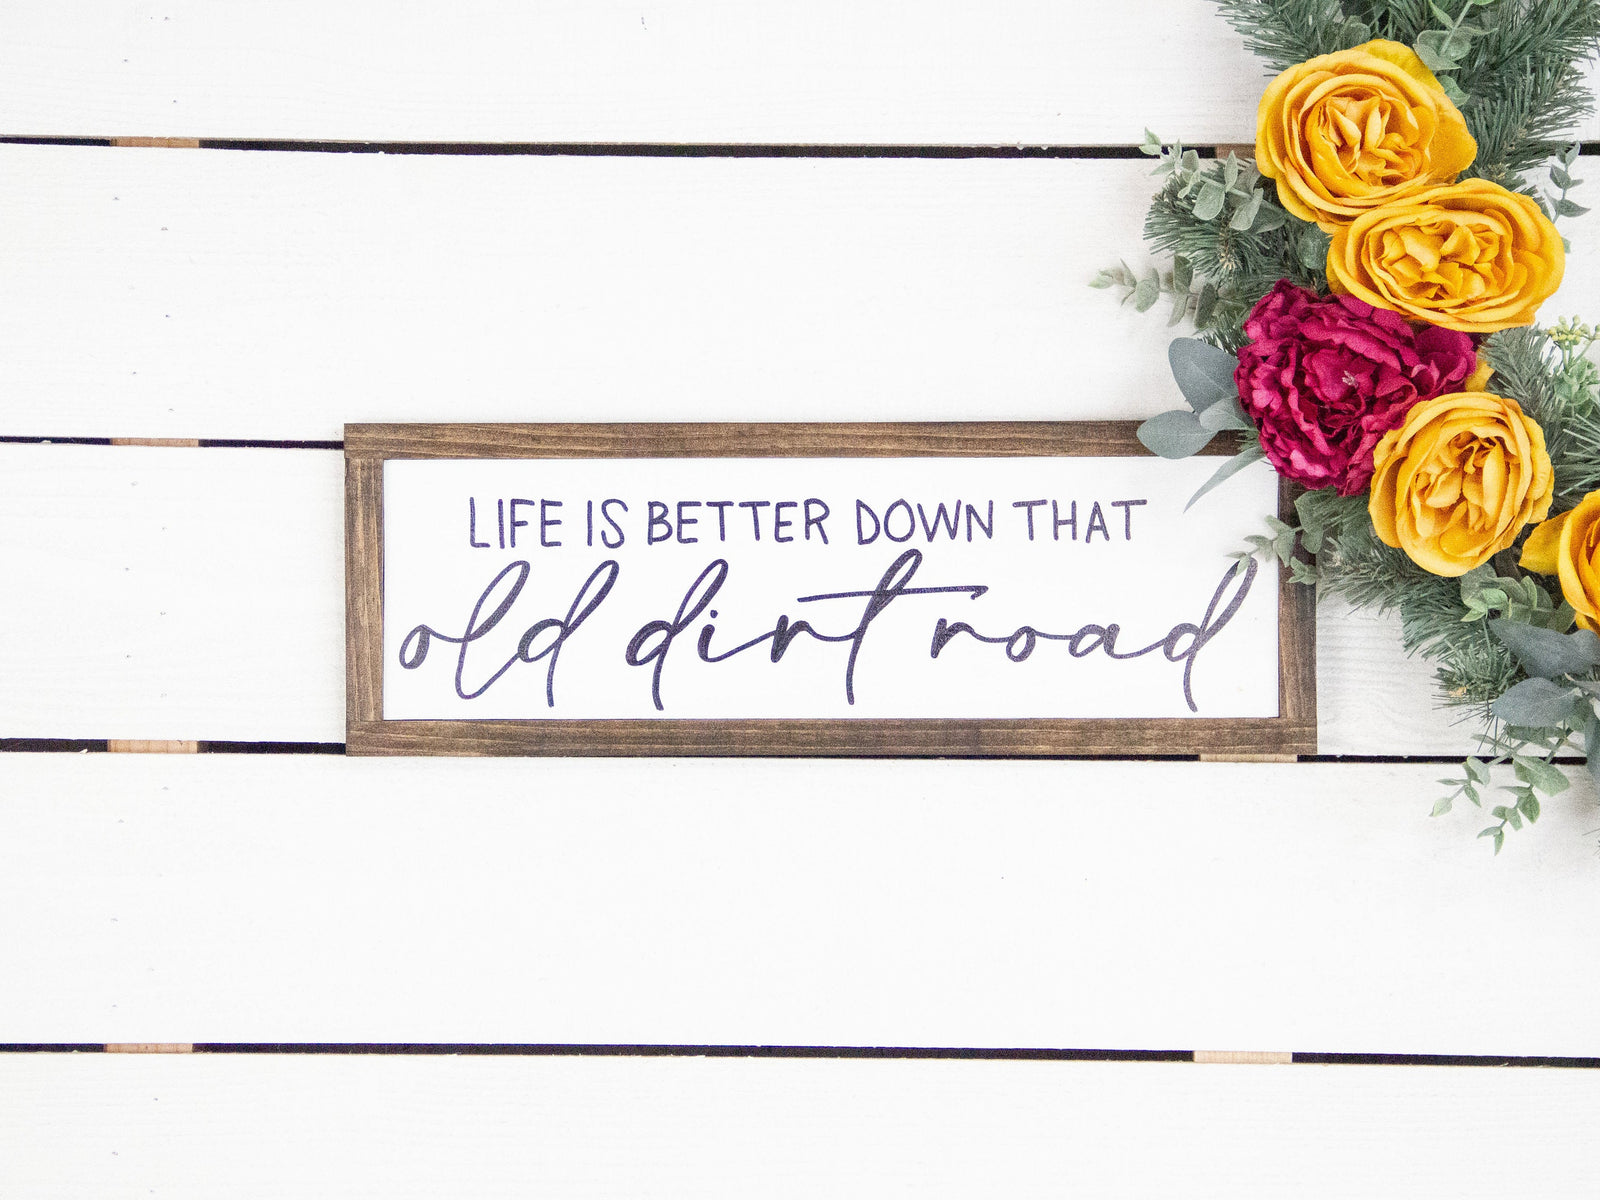 LIFE IS BETTER DOWN THAT
old dirt road